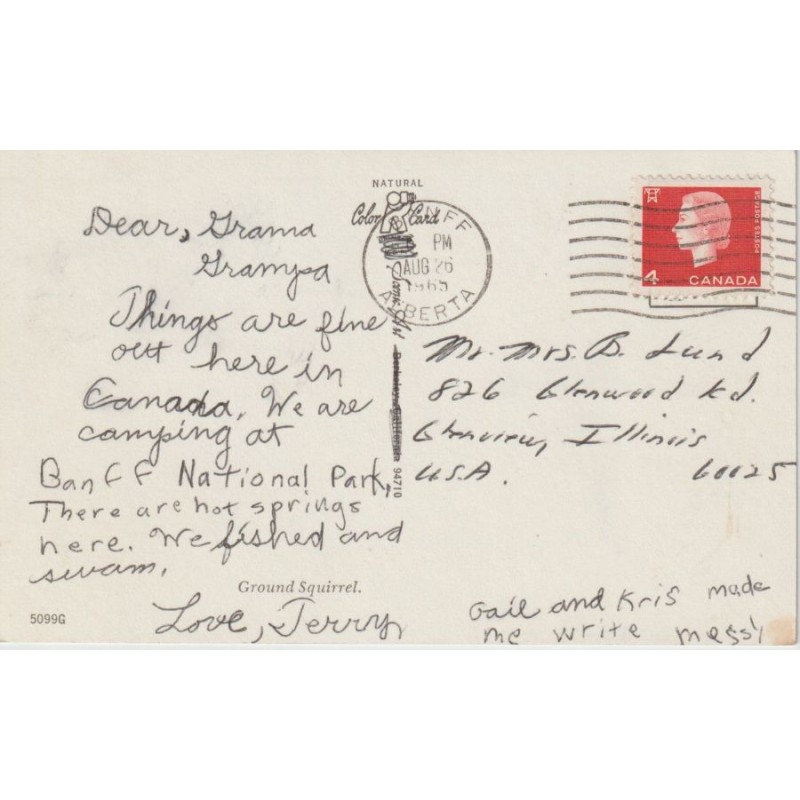 NATURAL
Color Card
Dear, Grama
Grampa
Things are fine
out here in
Canada, We are
camping at
Banff National Park,
There are hot springs
here. We fished and
swam.
Love, Jerry
Ground Squirrel.
5099G
Berkeley, California 94710
BANFF
PM
AUG 26
1965
ALBERTA
4 CANADA
POSTES POSTAGE
Mr. Mrs. B. Lund
826 Glenwood Rd.
Glenview, Illinois
U.S.A. 60025
Gail and Kris made
me write messy